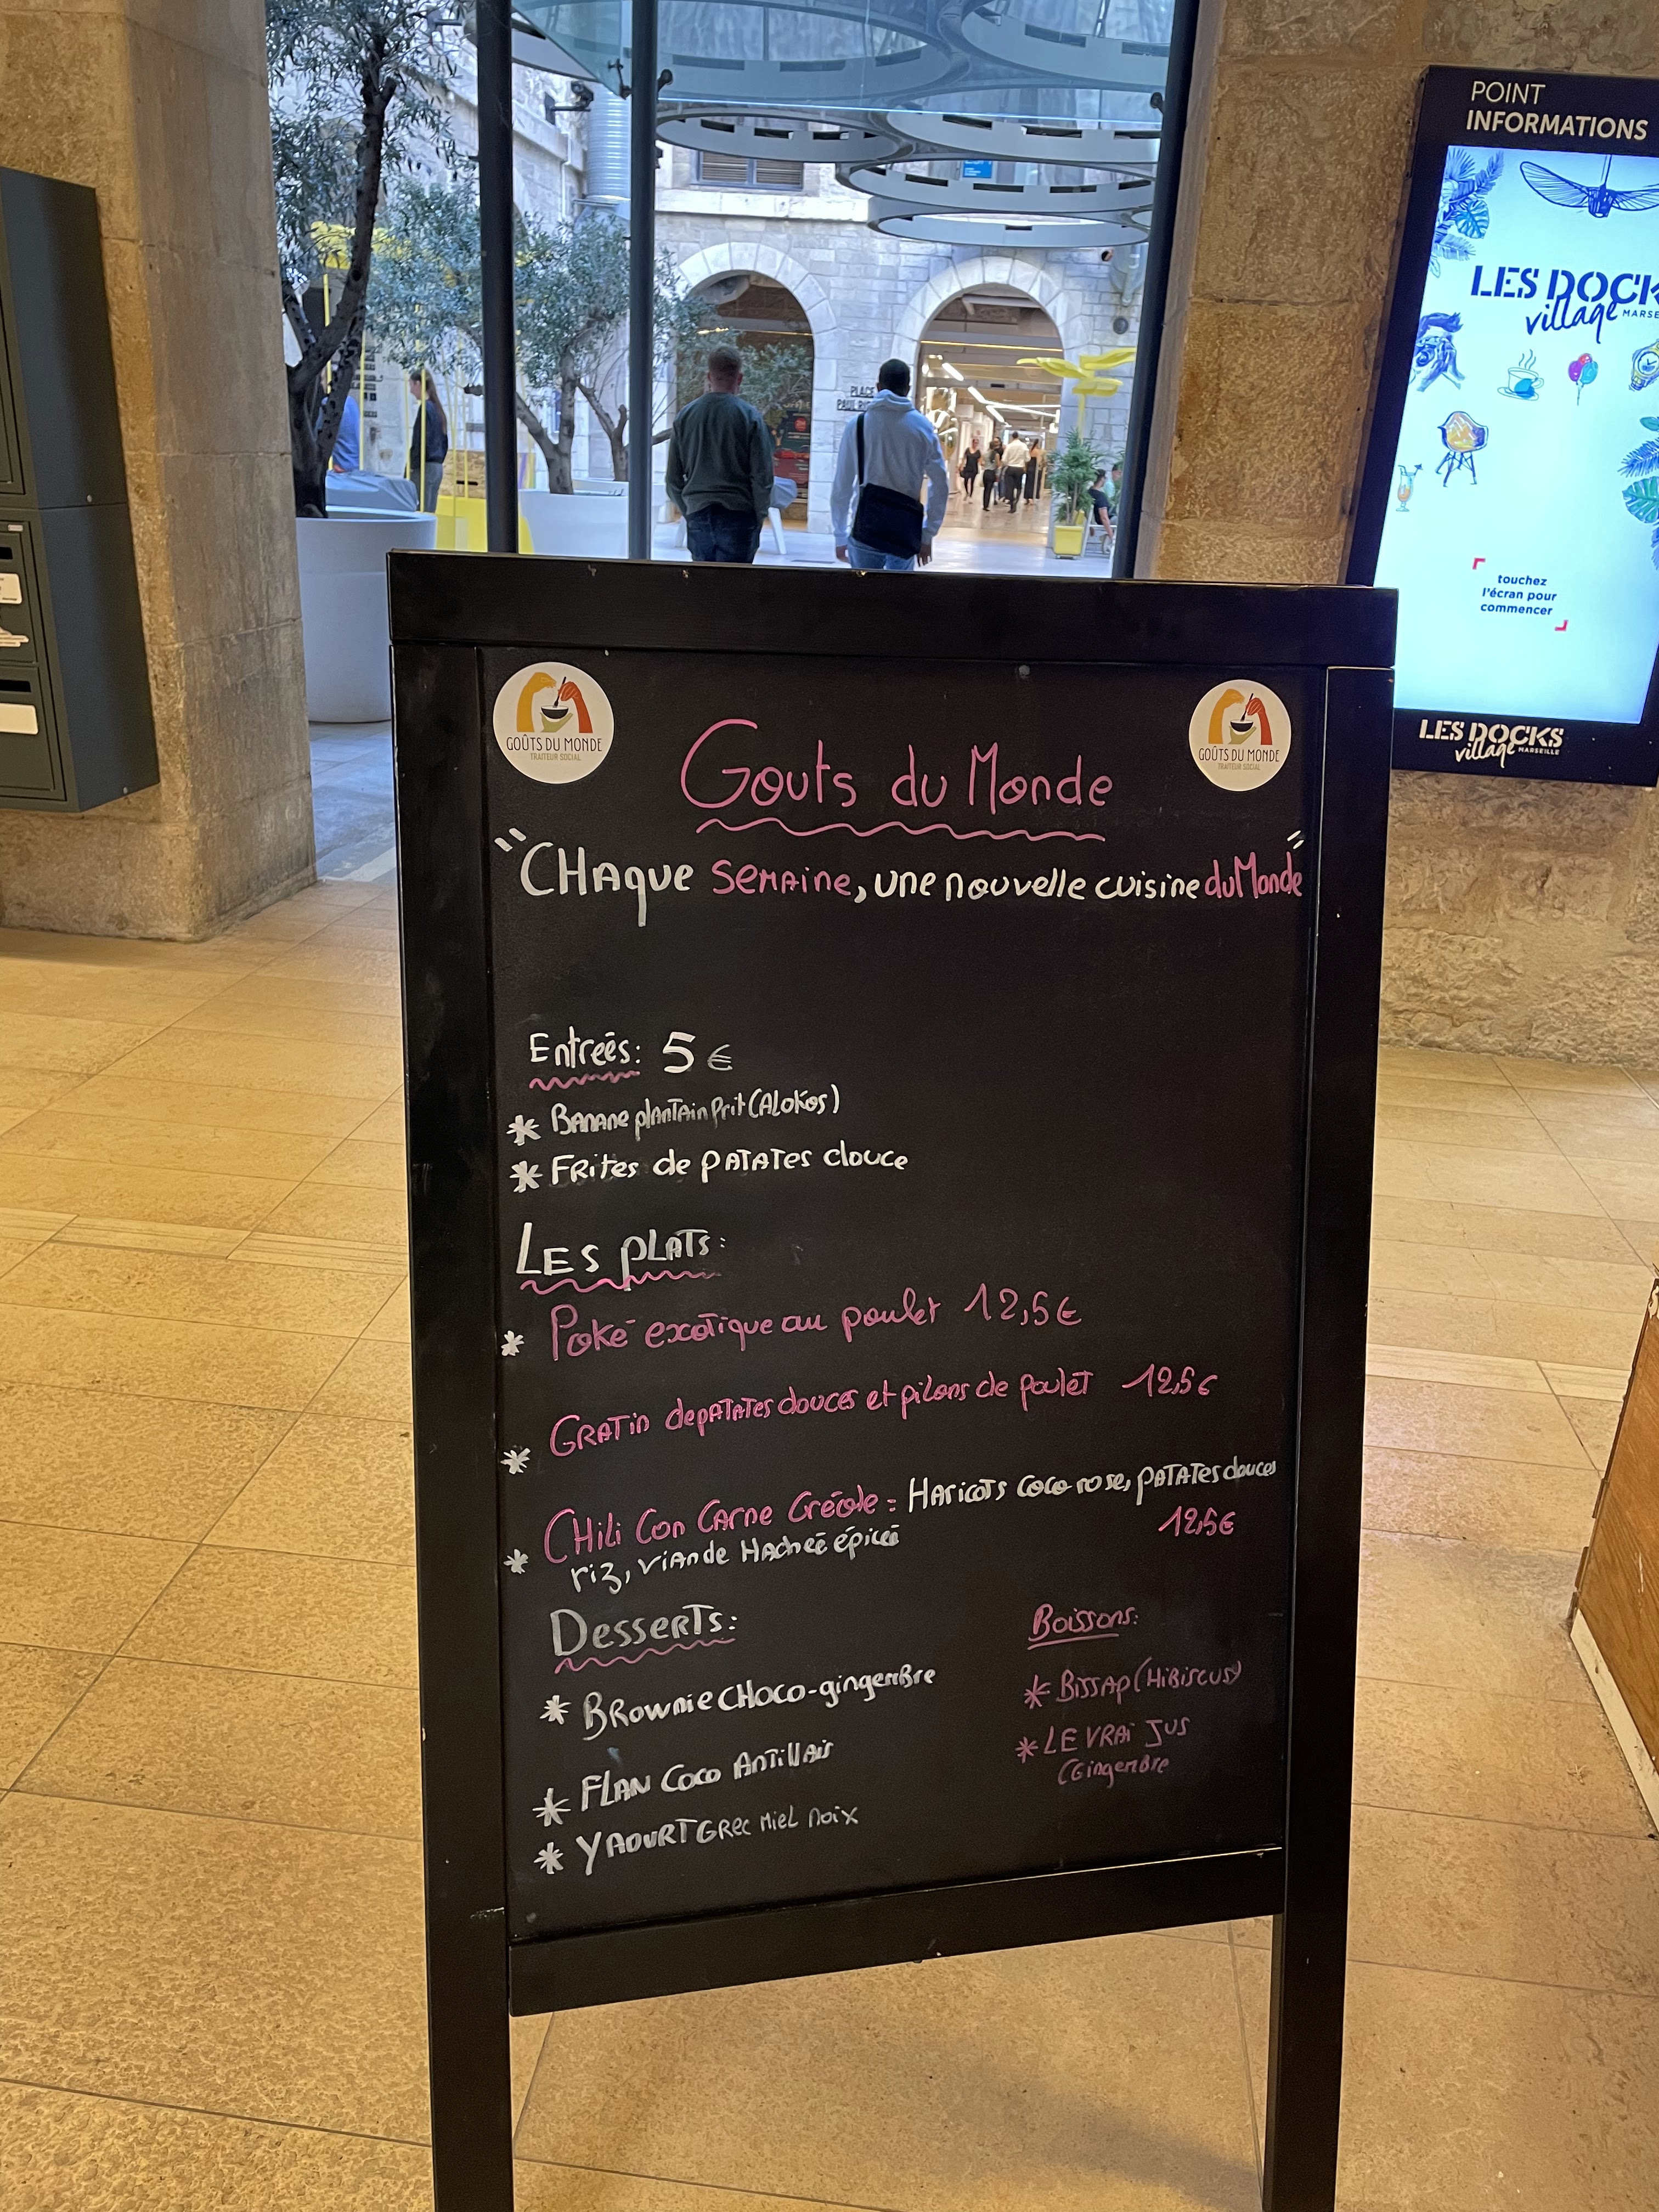 POINT
INFORMATIONS
LES DOCK
village MARSE
PLACE
touchez
l'écran pour
commencer
LES DOCKS
village MARSEILLE
GOÛTS DU MONDE
TRAITEUR SOCIAL
GOÛTS DU MONDE
TRAITEUR SOCIAL
Gouts du Monde
"CHaque semaine, une nouvelle cuisine du Monde"
Entreés: 5 €
* Banane plantain frit (Alokos)
* Frites de patates douce
Les plats:
* Poké exotique au poulet 12,5€
* Gratin de patates douces et pilons de poulet 12,5€
* Chili Con Carne Créole = Haricots coco rose, patates douces
riz, viande Hacheé épicée 12,5€
Desserts:
* Brownie CHoco-gingembre
* Flan Coco Antillais
* Yaourt Grec Miel noix
Boissons:
* Bissap (Hibiscus)
* Le vrai Jus
(Gingembre